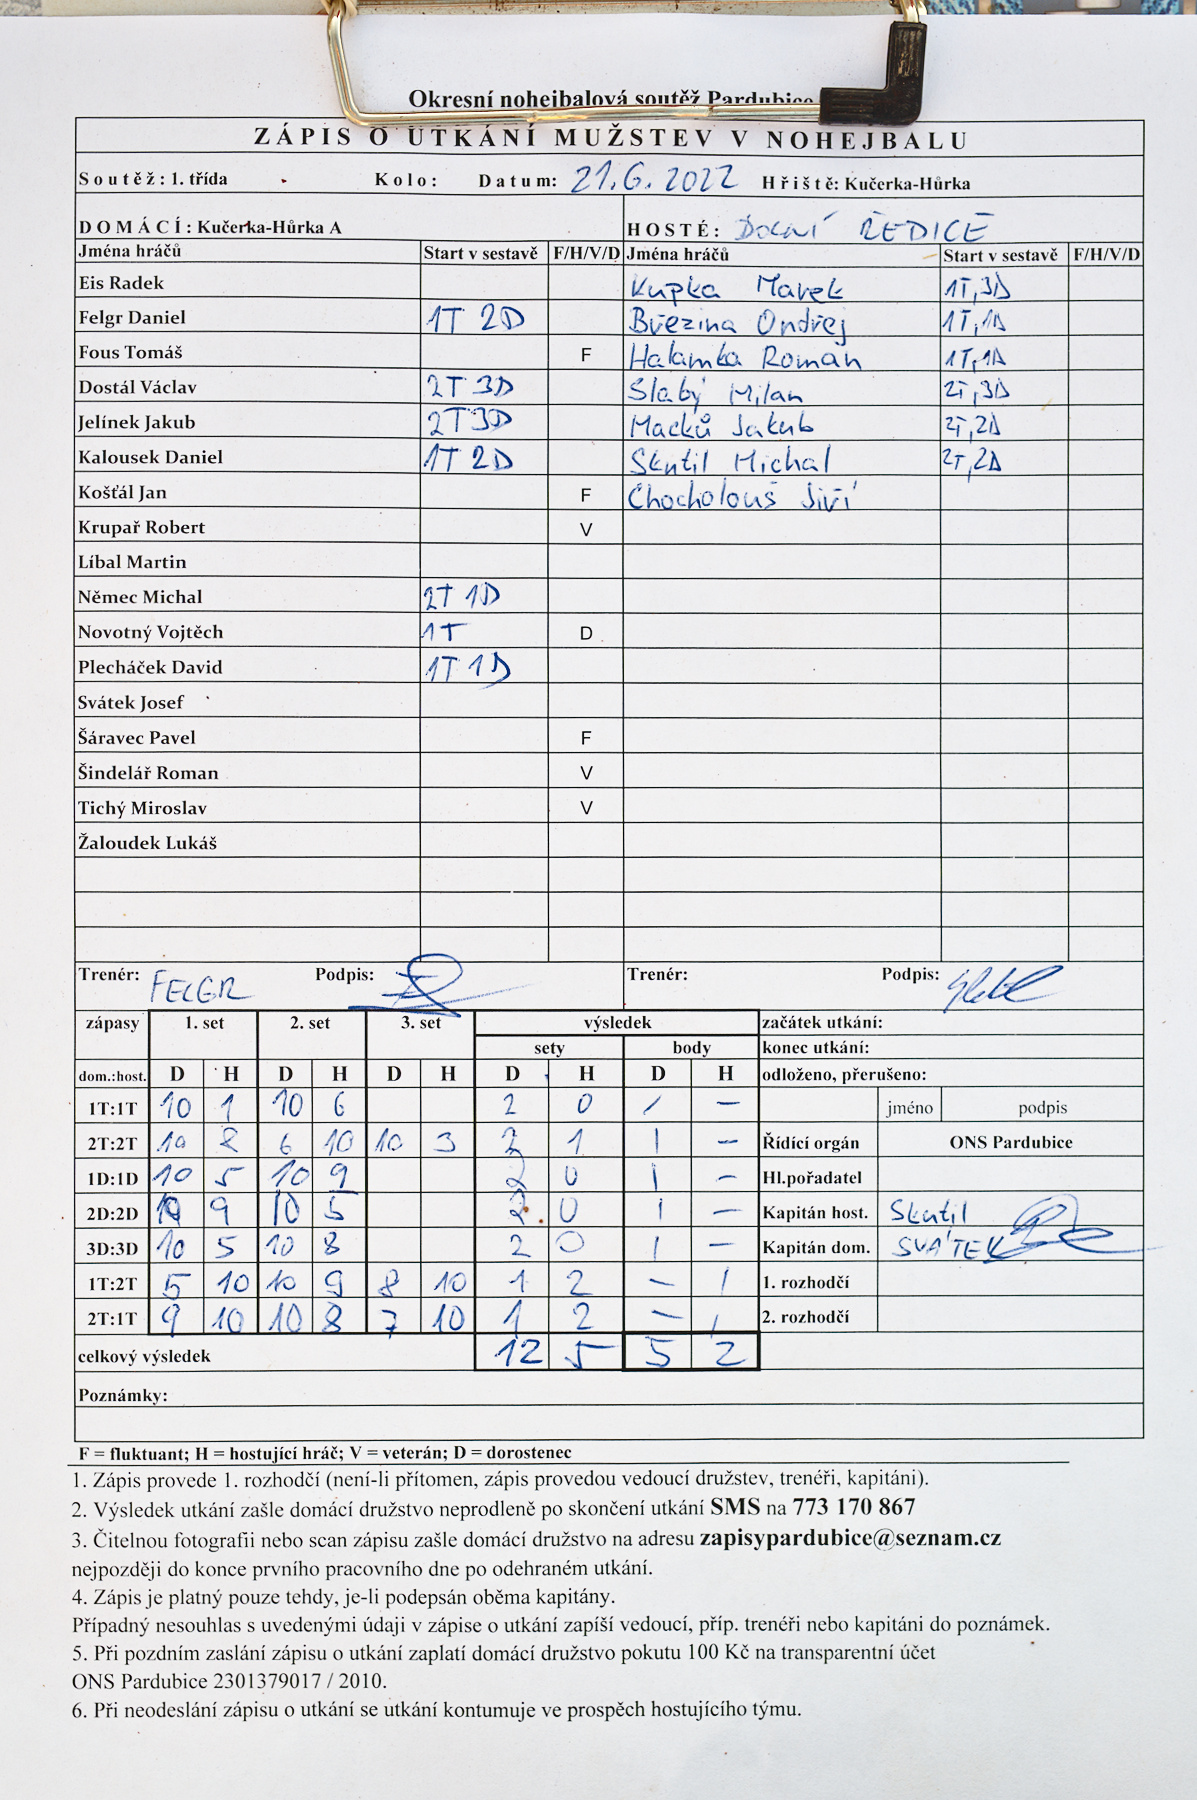 Okresní nohejbalová soutěž Pardubice
ZÁPIS O UTKÁNÍ MUŽSTEV V NOHEJBALU
Soutěž: 1. třída Kolo: Datum: 21.6.2022 Hřiště: Kučerka-Hůrka
DOMÁCÍ: Kučerka-Hůrka A HOSTÉ: DOLNÍ ŘEDICE
Jména hráčů Start v sestavě F/H/V/D Jména hráčů Start v sestavě F/H/V/D
Eis Radek Kupka Marek 1T,3D
Felgr Daniel 1T 2D Březina Ondřej 1T,1D
Fous Tomáš F Halamka Roman 1T,1D
Dostál Václav 2T 3D Slabý Milan 2T,3D
Jelínek Jakub 2T3D Macků Jakub 2T,2D
Kalousek Daniel 1T 2D Skutil Michal 2T,2D
Košťál Jan F Chocholouš Jiří
Krupař Robert V
Líbal Martin
Němec Michal 2T 1D
Novotný Vojtěch 1T D
Plecháček David 1T 1D
Svátek Josef
Šáravec Pavel F
Šindelář Roman V
Tichý Miroslav V
Žaloudek Lukáš
Trenér: FELGR Podpis: Trenér: Podpis:
zápasy 1. set 2. set 3. set výsledek začátek utkání:
sety body konec utkání:
dom.:host. D H D H D H D H D H odloženo, přerušeno:
1T:1T 10 1 10 6 2 0 / – jméno podpis
2T:2T 10 8 6 10 10 3 2 1 1 – Řídící orgán ONS Pardubice
1D:1D 10 5 10 9 2 0 1 – Hl.pořadatel
2D:2D 10 9 10 5 2 0 1 – Kapitán host. Skutil
3D:3D 10 5 10 8 2 0 1 – Kapitán dom. SVÁTEK
1T:2T 5 10 10 9 8 10 1 2 – 1 1. rozhodčí
2T:1T 9 10 10 8 7 10 1 2 – 1 2. rozhodčí
celkový výsledek 12 5 5 2
Poznámky:
F = fluktuant; H = hostující hráč; V = veterán; D = dorostenec
1. Zápis provede 1. rozhodčí (není-li přítomen, zápis provedou vedoucí družstev, trenéři, kapitáni).
2. Výsledek utkání zašle domácí družstvo neprodleně po skončení utkání SMS na 773 170 867
3. Čitelnou fotografii nebo scan zápisu zašle domácí družstvo na adresu zapisypardubice@seznam.cz
nejpozději do konce prvního pracovního dne po odehraném utkání.
4. Zápis je platný pouze tehdy, je-li podepsán oběma kapitány.
Případný nesouhlas s uvedenými údaji v zápise o utkání zapíší vedoucí, příp. trenéři nebo kapitáni do poznámek.
5. Při pozdním zaslání zápisu o utkání zaplatí domácí družstvo pokutu 100 Kč na transparentní účet
ONS Pardubice 2301379017 / 2010.
6. Při neodeslání zápisu o utkání se utkání kontumuje ve prospěch hostujícího týmu.